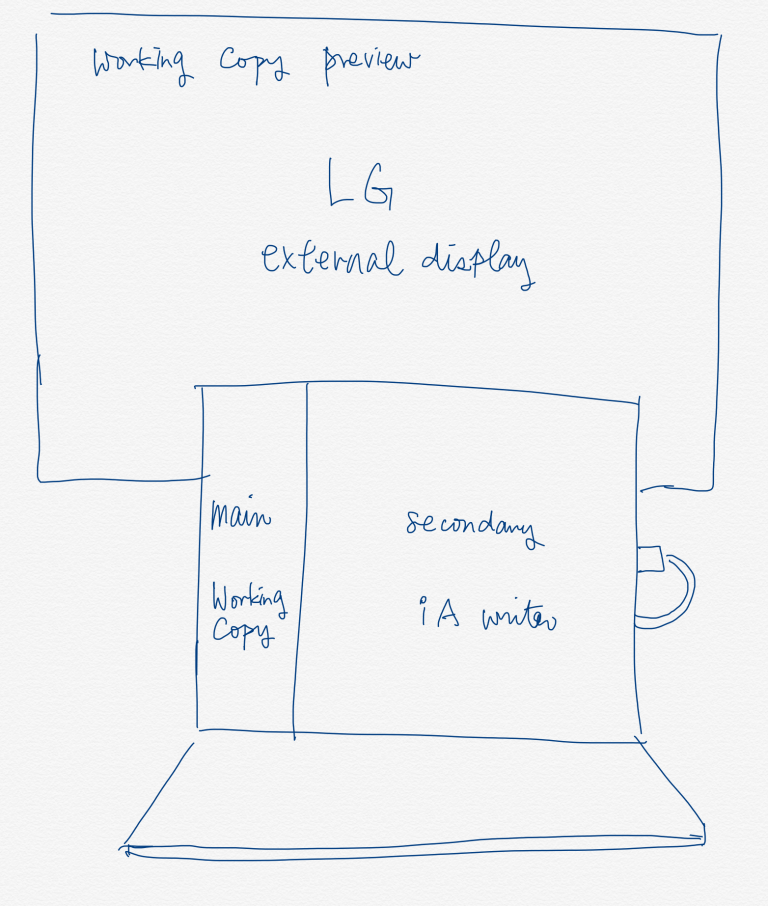 Working Copy preview
LG
external display
main
Working
Copy
secondary
iA writer